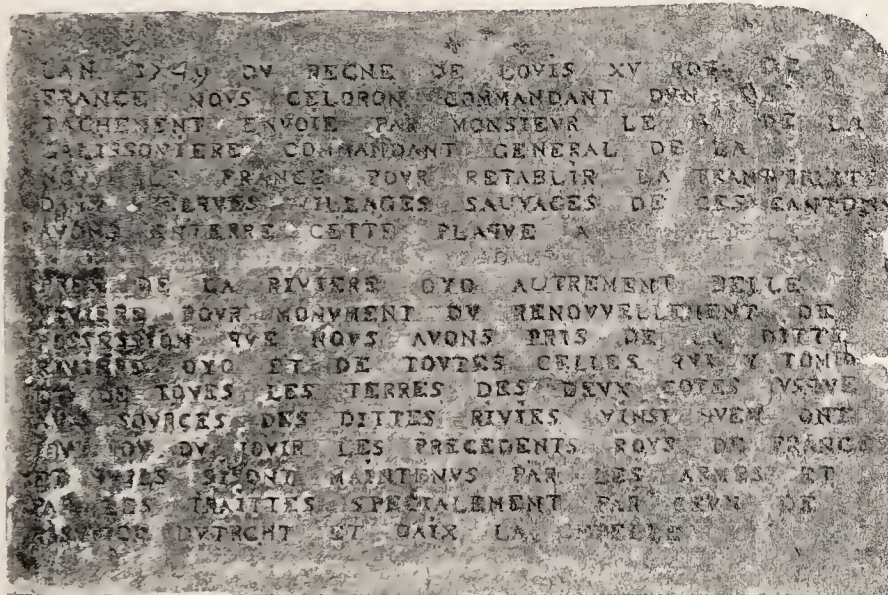 LAN 1749 DV REGNE DE LOVIS XV ROY DE
FRANCE NOVS CELORON COMMANDANT DVN DE
TACHEMENT ENVOIE PAR MONSIEVR LE M DE LA
GALISSONIERE COMMANDANT GENERAL DE LA
FRANCE POVR RETABLIR LA
DANS VILLAGES SAUVAGES DE CES CANTONS
AVONS ENTERRE CETTE PLAQVE A
DE LA RIVIERE OYO AUTREMENT BELLE
RIVIERE POVR MONVMENT DV RENOVVELLEMENT DE
POSSESSION QVE NOVS AVONS PRIS DE LA DITTE
RIVIERE OYO ET DE TOVTES CELLES QVI Y TOMB
ET DE TOVES LES TERRES DES DEVX COTES JVSQVE
AVX SOVRCES DES DITTES RIVIES VINSI QVEN ONT
OV DV JOVIR LES PRECEDENTS ROYS DE FRANCE
ET MAINTENVS PAR LES ARMES ET
PAR LES TRAITTES SPECIALEMENT PAR CEVX DE
DVTRCHT ET DAIX LA